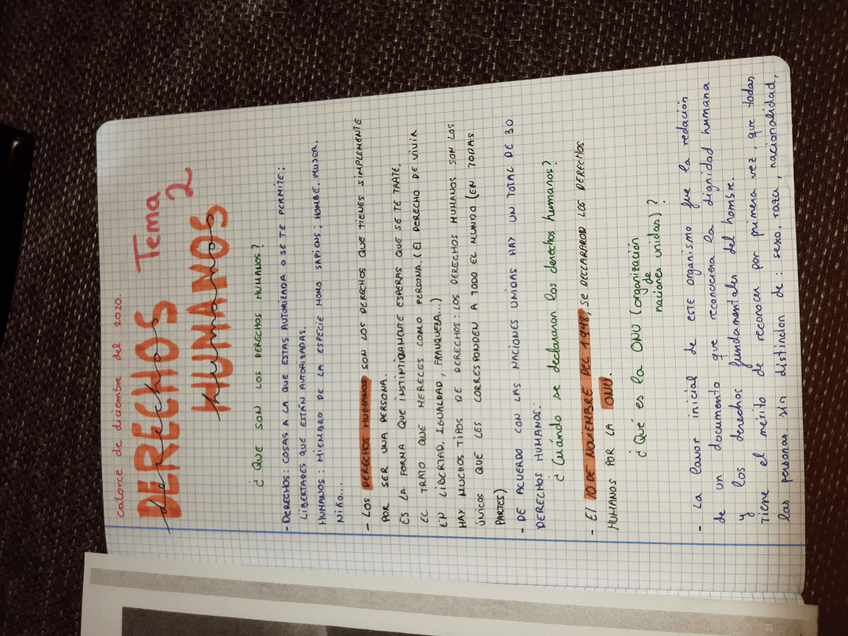 catorce de diciembre del 2020.
DERECHOS Tema 2
derechos
HUMANOS
humanos
¿ QUE SON LOS DERECHOS HUMANOS?
- DERECHOS: COSAS A LA QUE ESTAS AUTORIZADA O SE TE PERMITE;
LIBERTADES QUE ESTÁN AUTORIZADAS.
HUMANOS: MIEMBRO DE LA ESPECIE HOMO SAPIENS; HOMBE, MUJER,
NIÑO...
- LOS DERECHOS HUMANOS SON LOS DERECHOS QUE TIENES SIMPLEMENTE
POR SER UNA PERSONA.
ES LA FORMA QUE INSTINTIVAMENTE ESPERAS QUE SE TE TRATE.
EL TRATO QUE MERECES COMO PERSONA. (EL DERECHO DE VIVIR
EN LIBERTAD, IGUALDAD, FRANQUEZA...)
HAY MUCHOS TIPOS DE DERECHOS: LOS DERECHOS HUMANOS SON LOS
ÚNICOS QUE LES CORRESPONDEN A TODO EL MUNDO (EN TODAS
PARTES)
- DE ACUERDO CON LAS NACIONES UNIDAS HAY UN TOTAL DE 30
DERECHOS HUMANOS.
¿ Cuándo se declararon los derechos humanos?
- El 10 DE NOVIEMBRE DEL 1948, SE DECLARARON LOS DERECHOS
HUMANOS POR LA ONU.
¿ Qué es la ONU (organización
de
naciones unidas) ?
- La lavor inicial de este organismo fue la redación
de un documento que reconociera la dignidad humana
y los derechos fundamentales del hombre.
Tiene el mérito de reconocer por primera vez, que todas
las personas sin distinción de : sexo, raza, nacionalidad,